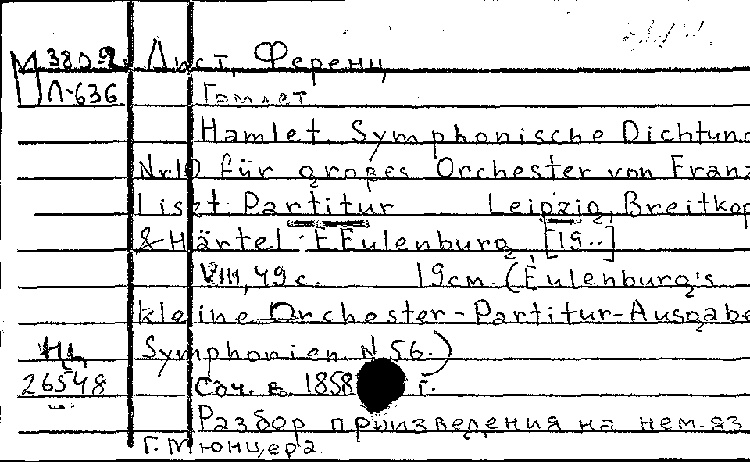 М 3809 Лист, Ференц
Л-636 Гамлет
Hamlet. Symphonische Dichtung
Nr10 für großes Orchester von Franz
Liszt. Partitur Leipzig, Breitkop
& Härtel. E Eulenburg, [19..]
VIII, 49 с. 19см. (Eulenburg's
kleine Orchester-Partitur-Ausgabe
Symphonien N 56.)
26548 Соч. в 1858 г.
Разбор произведения на нем.яз
Г. Мюнцера.